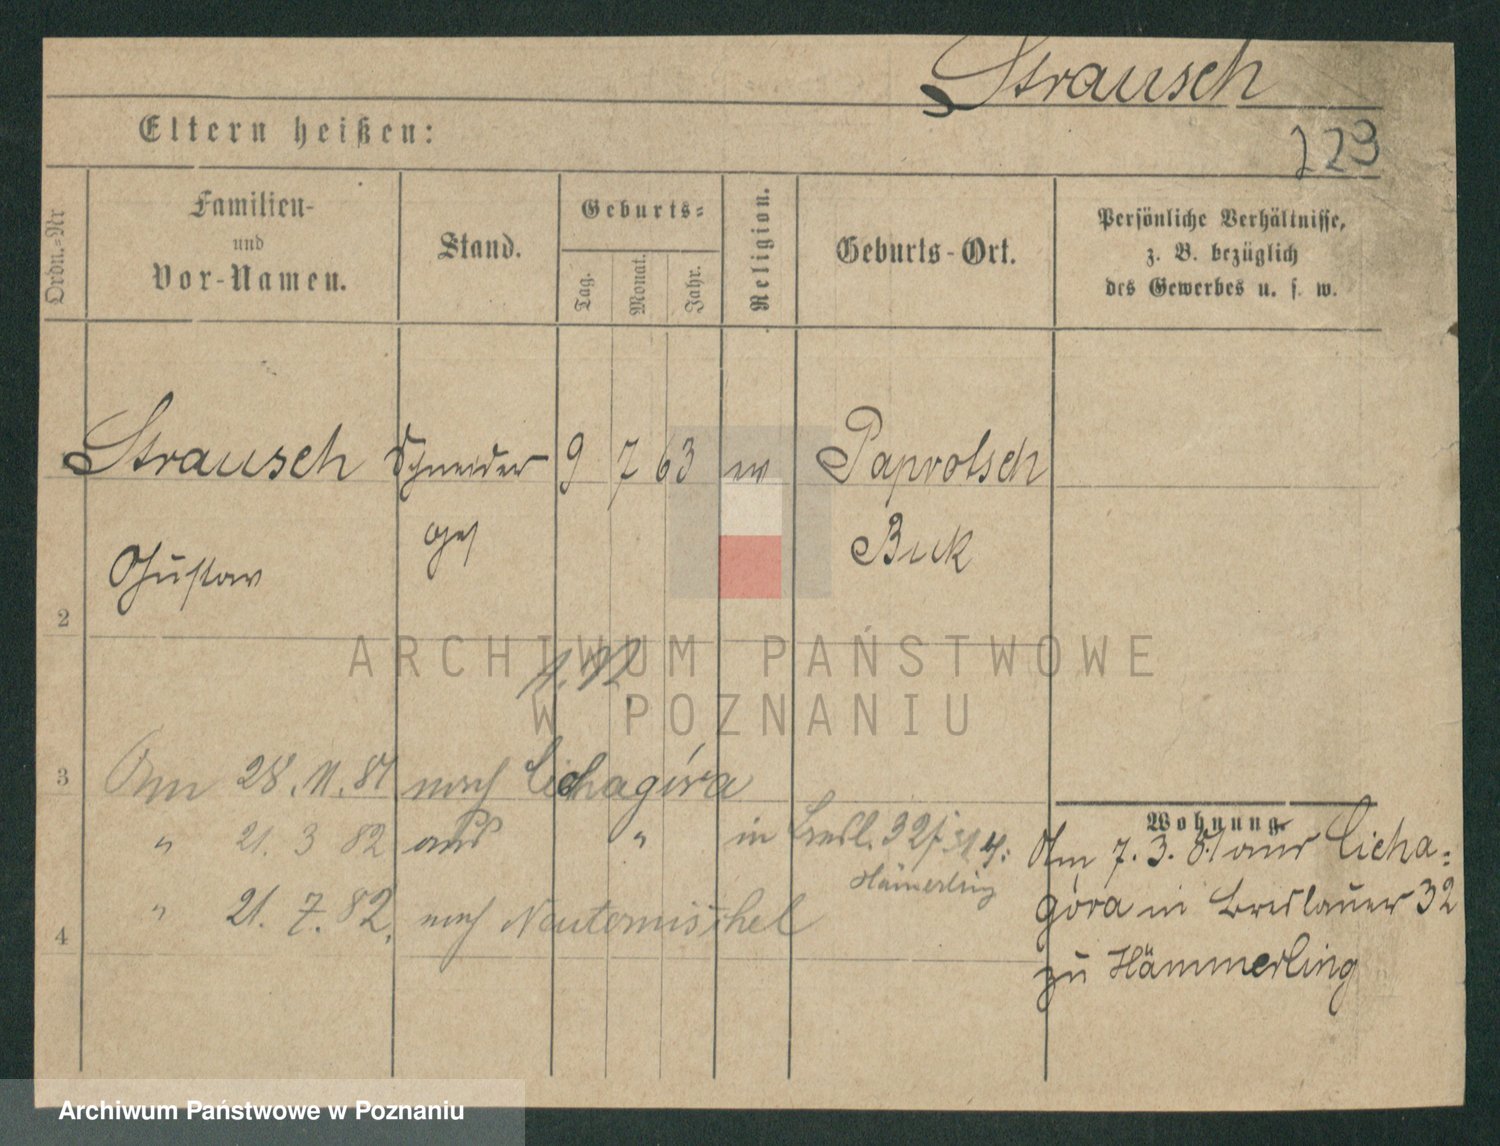 Strausch
Eltern heißen:
229
Ordn.=Nr
Familien-
und
Vor-Namen.
Stand.
Geburts=
Tag.
Monat.
Jahr.
Religion.
Geburts-Ort.
Persönliche Verhältnisse,
z. B. bezüglich
des Gewerbes u. s. w.
Strausch Schneider 9 7 63 Paprotsch
Gustav ges Buk
2
3
Am 28. 11. 81 nach Cichagóra
" 21. 3 82 aus " in Bresl. 32
Hämerling
" 21. 7. 82. nach Neutomischel
4
Wohnung.
Am 7. 3. 81 aus Cicha=
góra in Breslauer 32
zu Hämmerling
ARCHIWUM PAŃSTWOWE
W POZNANIU
Archiwum Państwowe w Poznaniu